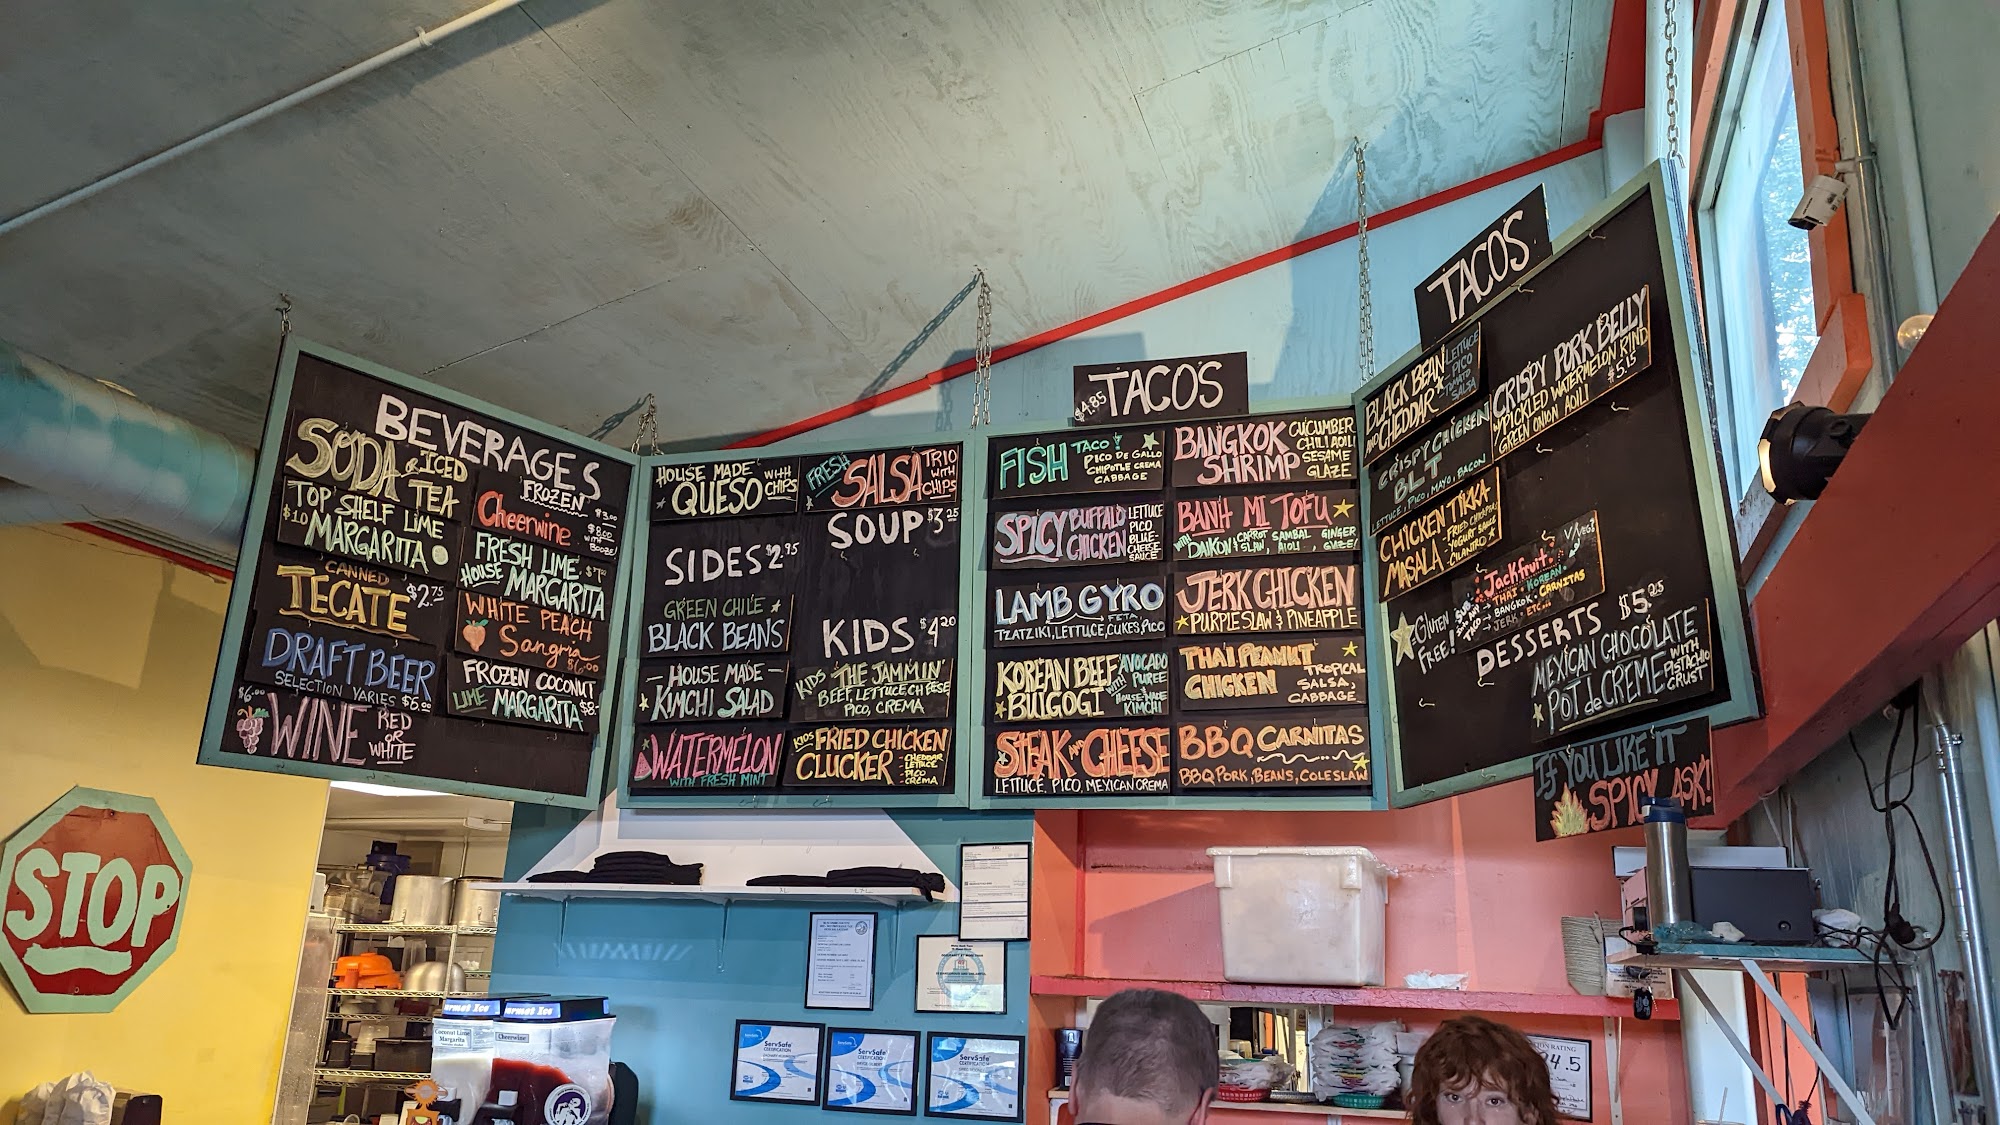 BEVERAGES
SODA OR ICED TEA
TOP SHELF LIME
$10 MARGARITA
CANNED
TECATE $2.75
DRAFT BEER
SELECTION VARIES $5.00
$6.00 WINE RED OR WHITE
FROZEN
Cheerwine $3.00
$8.00 WITH BOOZE!
FRESH LIME
HOUSE MARGARITA
WHITE PEACH
Sangria
$6.00
FROZEN COCONUT
LIME MARGARITA $8-
HOUSE MADE
QUESO WITH CHIPS
SIDES $2.95
GREEN CHILE
BLACK BEANS
- HOUSE MADE -
KIMCHI SALAD
WATERMELON
WITH FRESH MINT
FRESH SALSA TRIO WITH CHIPS
SOUP $3.25
KIDS $4.20
KIDS THE JAMMIN'
BEEF, LETTUCE, CHEESE
PICO, CREMA
KIDS FRIED CHICKEN
CLUCKER - CHEDDAR
- LETTUCE
- PICO
CREMA
$4.85 TACOS
FISH TACO!
PICO DE GALLO
CHIPOTLE CREMA
CABBAGE
SPICY BUFFALO CHICKEN
LETTUCE
PICO
BLUE-
CHEESE
SAUCE
LAMB GYRO
FETA
TZATZIKI, LETTUCE, CUKES, PICO
KOREAN BEEF
BULGOGI
AVOCADO
PUREE
WITH
HOUSE-MADE
KIMCHI
STEAK AND CHEESE
LETTUCE, PICO, MEXICAN CREMA
BANGKOK
SHRIMP
CUCUMBER
CHILI AOLI
SESAME
GLAZE
BANH MI TOFU
WITH DAIKON & CARROT SLAW, SAMBAL AIOLI, GINGER GLAZE!
JERK CHICKEN
PURPLE SLAW & PINEAPPLE
THAI PEANUT
CHICKEN
TROPICAL
SALSA,
CABBAGE
BBQ CARNITAS
BBQ PORK, BEANS, COLESLAW
TACOS
BLACK BEAN
AND CHEDDAR
LETTUCE
PICO
TOMATO
SALSA
CRISPY CHICKEN
BLT
LETTUCE, PICO, MAYO, BACON
CHICKEN TIKKA
MASALA
- FRIED CHICKPEAS
- YOGURT SAUCE
- CILANTRO
GLUTEN
FREE!
CRISPY PORK BELLY
W/ PICKLED WATERMELON RIND
GREEN ONION AOLI $5.15
Jackfruit
V/VEG?
SUB ANY TACO
THAI • KOREAN •
BANGKOK • CARNITAS
JERK • ETC...
DESSERTS $5.25
MEXICAN CHOCOLATE
POT de CREME
WITH
PISTACHIO
CRUST
IF YOU LIKE IT
SPICY ASK!
STOP
Coconut Lime
Margarita
Cheerwine
ServSafe
CERTIFICATION
ServSafe
CERTIFICATION
ServSafe
CERTIFICATION